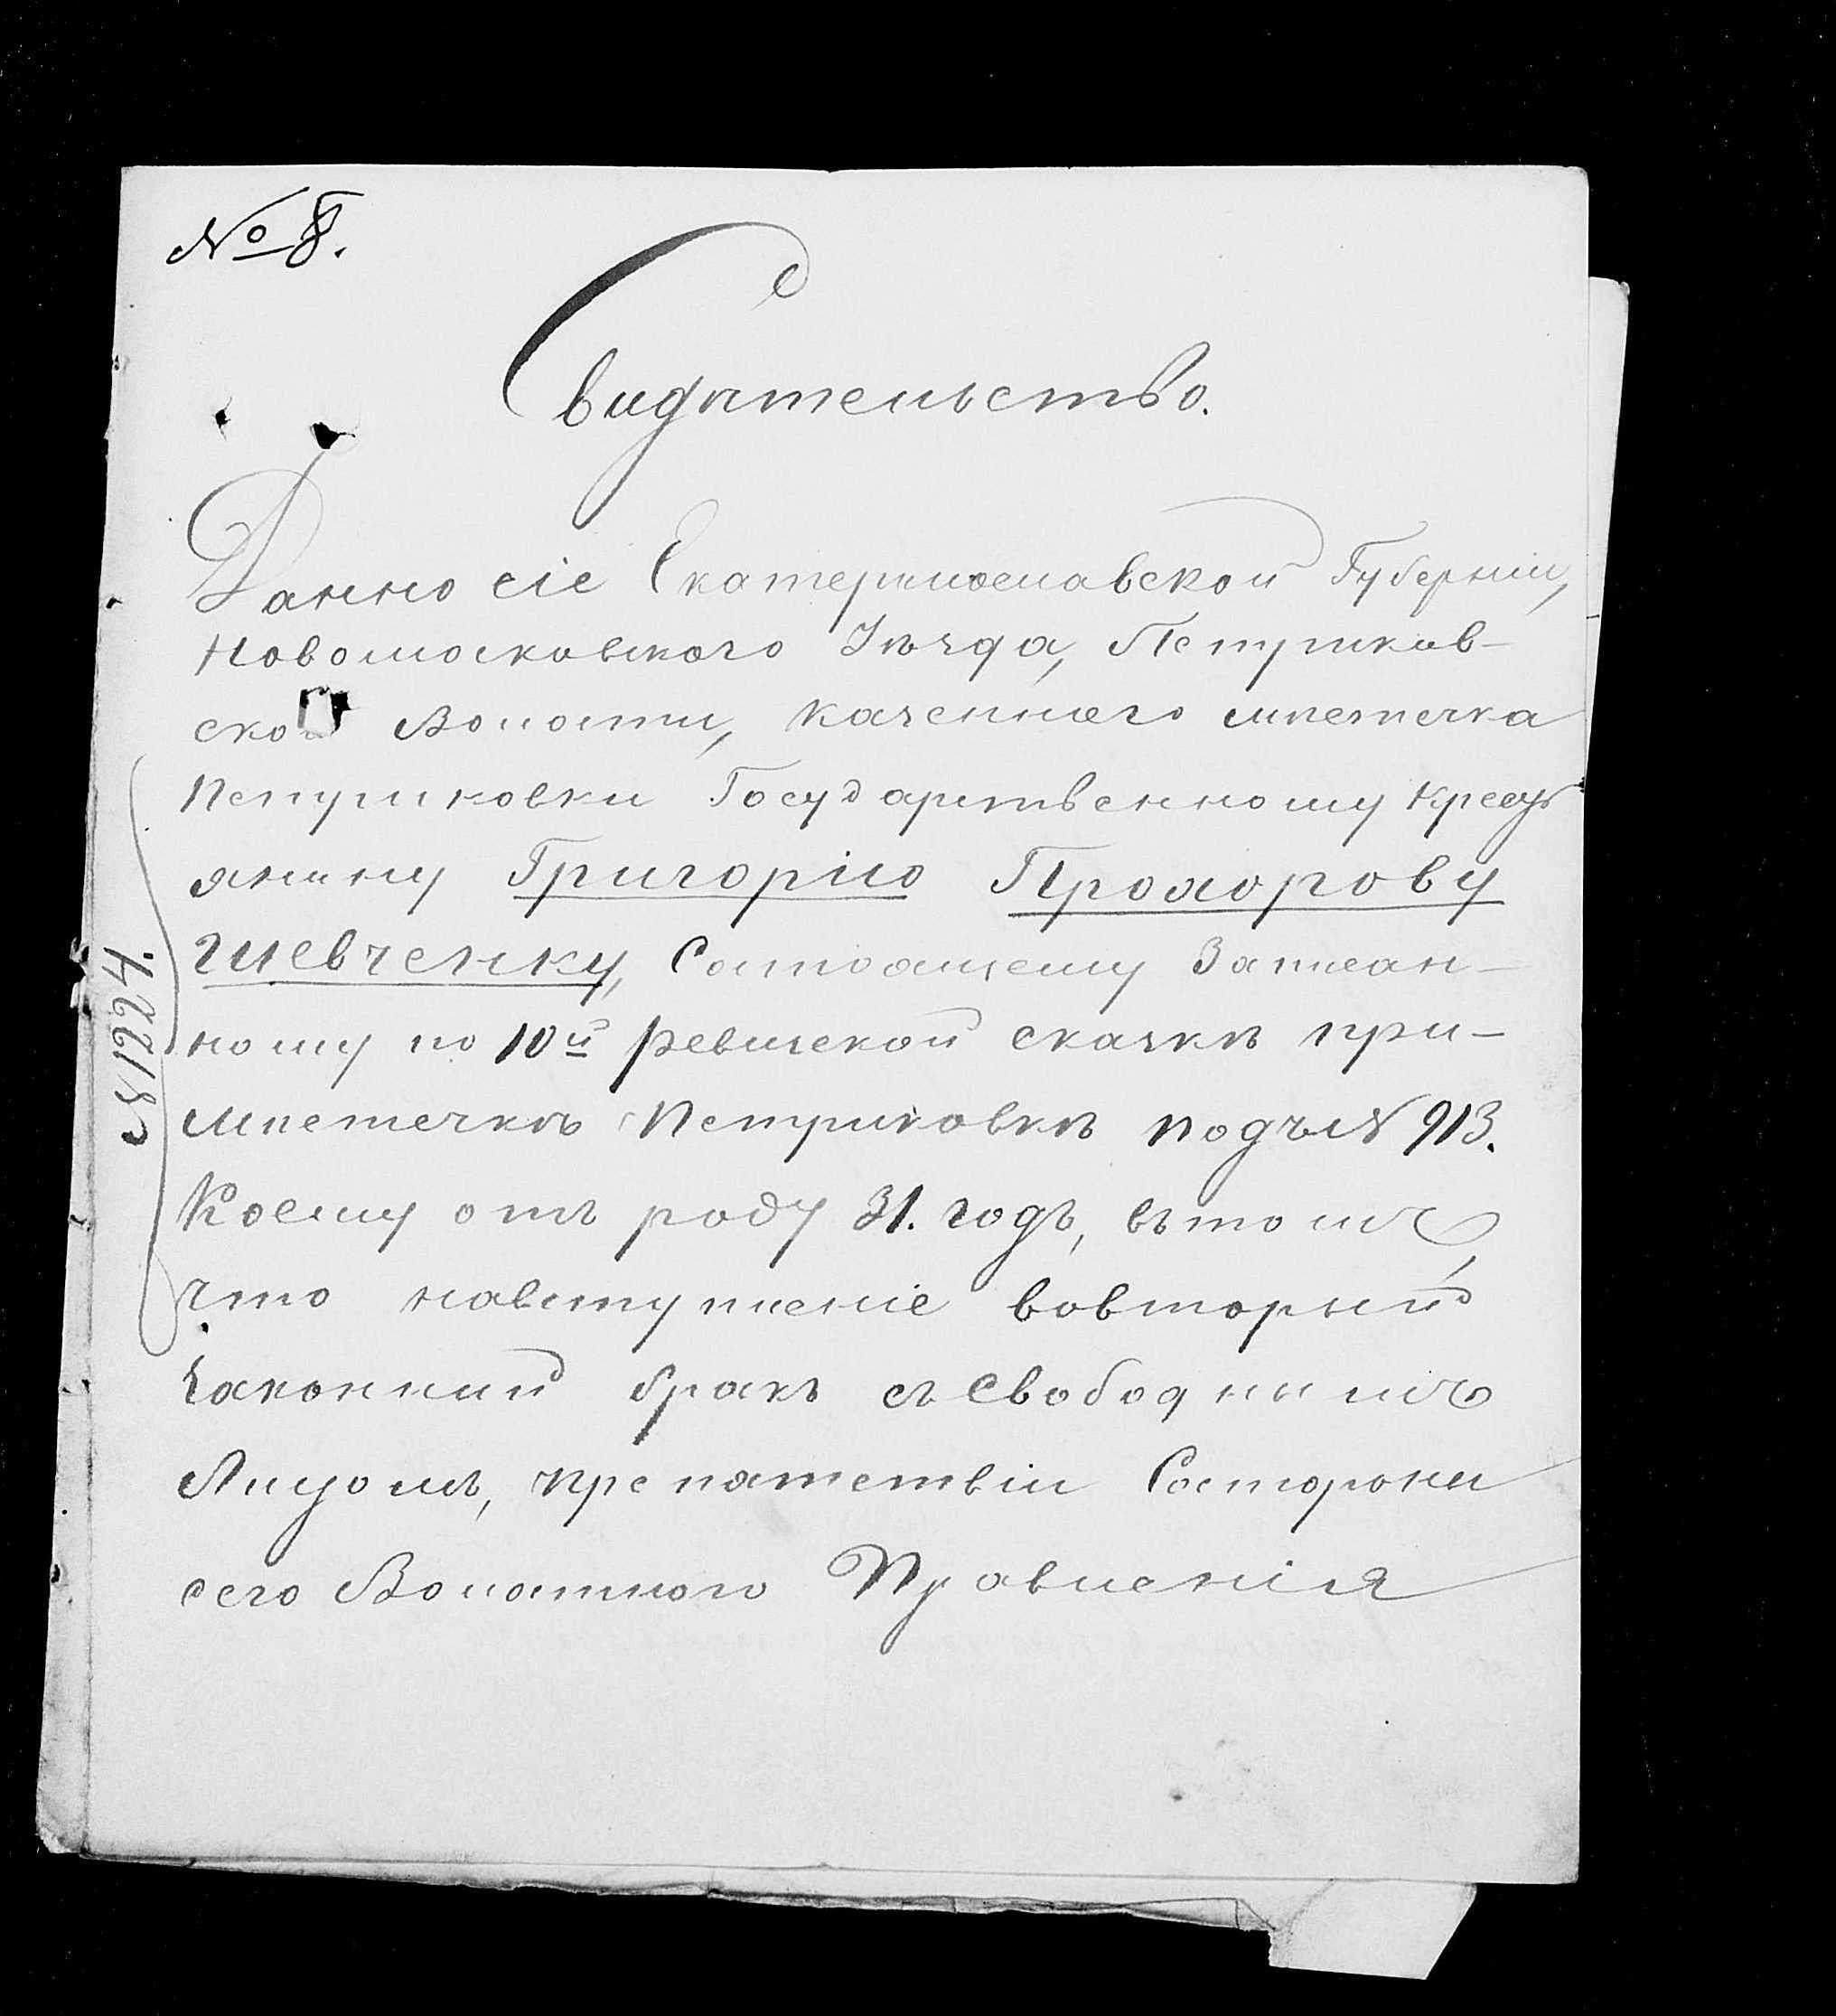 № 8.
Свидѣтельство.
Данно сіе Екатеринославской Губерніи,
Новомосковского Уѣзда, Петриков-
ской Волости, казенного мѣстечка
Петриковки Государственному Кресть
янину Григорію Прохорову
Шевченку, Состоящему Записан-
ному по 10й Ревизской сказкѣ при-
мѣстечкѣ Петриковкѣ подъ № 913.
Коему отъ роду 31. годъ, вътомъ,
что навступленіе вовторый
Законный бракъ съ свободнымъ
Лицомъ, препятствіи Состороны
сего Волостного Правленія
№ 1224.